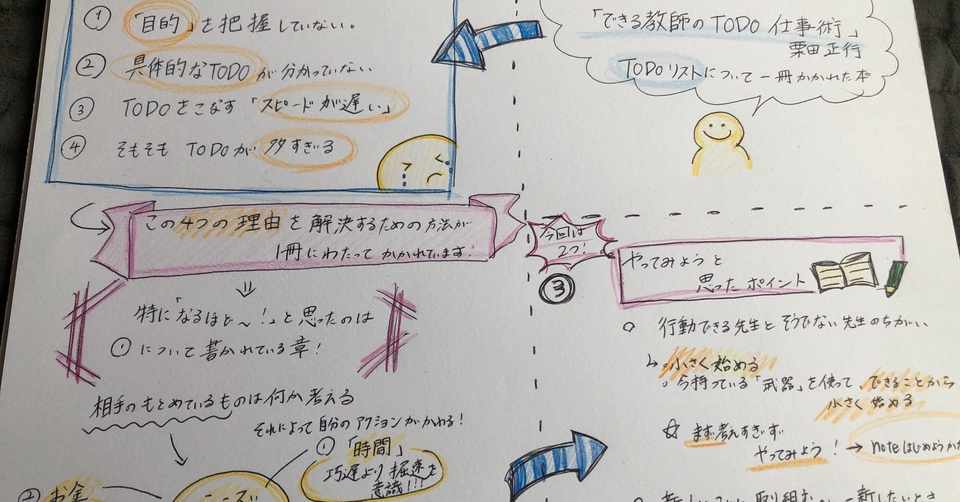 ① 「目的」を把握していない。
② 具体的なTODOが分かっていない
③ TODOをこなす「スピードが遅い」
④ そもそも TODOが 多すぎる
「できる教師のTODO 仕事術」
栗田正行
TODOリストについて一冊かかれた本
この4つの理由を解決するための方法が
1冊にわたってかかれています!
特に「なるほど〜!」と思ったのは
①について書かれている章!
相手のもとめているものは何か考える
それによって自分のアクションがかわる!
① 「時間」
巧遅より拙速を
意識!!!
② お金
今回は
2つ!
③
やってみようと
思ったポイント
○ 行動できる先生とそうでない先生のちがい
↳ 小さく始める
○ 今持っている「武器」を使って できることから
小さく始める
☆ まず考えすぎず
やってみよう! → noteはじめようか